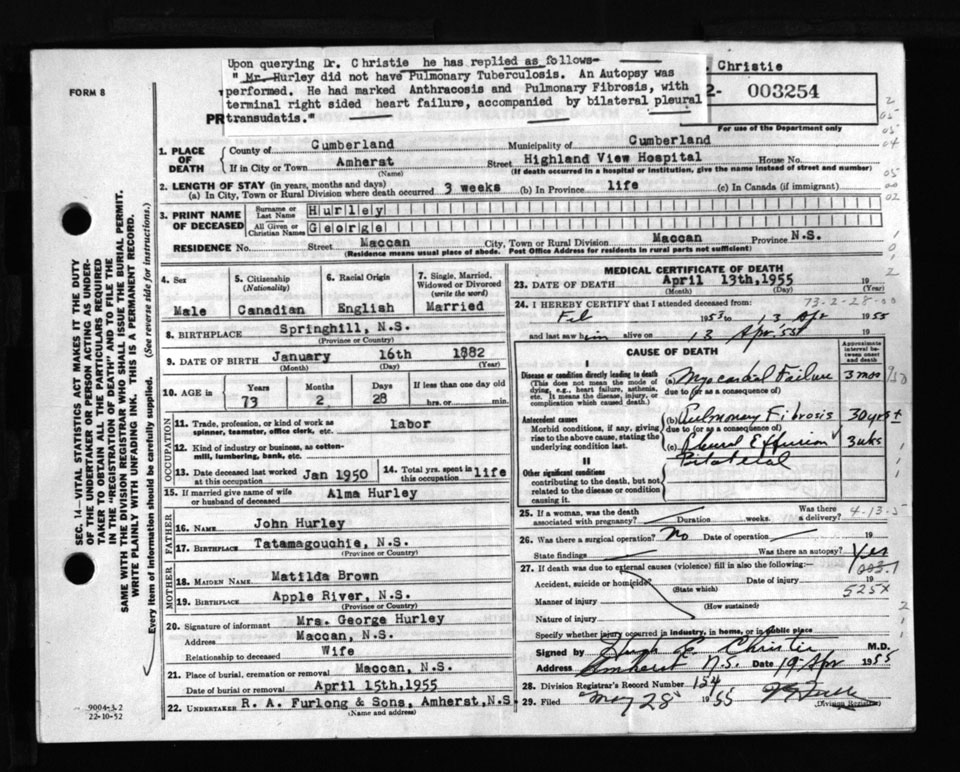 Upon querying Dr. Christie he has replied as follows-
" Mr. Hurley did not have Pulmonary Tuberculosis. An Autopsy was
performed. He had marked Anthracosis and Pulmonary Fibrosis, with
terminal right sided heart failure, accompanied by bilateral pleural
transudatis."
. Christie
FORM 8
2- 003254
PR
For use of the Department only
1. PLACE OF DEATH
County of Cumberland Municipality of Cumberland
If in City or Town Amherst Street Highland View Hospital House No.
(Name) (If death occurred in a hospital or institution, give the name instead of street and number)
2. LENGTH OF STAY (in years, months and days)
(a) In City, Town or Rural Division where death occurred 3 weeks (b) In Province life (c) In Canada (if immigrant)
3. PRINT NAME OF DECEASED
Surname or Last Name Hurley
All Given or Christian Names George
RESIDENCE No. Street Maccan City, Town or Rural Division Maccan Province N.S.
(Residence means usual place of abode. Post Office Address for residents in rural parts not sufficient)
4. Sex Male
5. Citizenship (Nationality) Canadian
6. Racial Origin English
7. Single, Married, Widowed or Divorced (write the word) Married
8. BIRTHPLACE Springhill, N.S.
(Province or Country)
9. DATE OF BIRTH January 16th 1882
(Month) (Day) (Year)
10. AGE in Years 73 Months 2 Days 28 If less than one day old hrs. or min.
OCCUPATION
11. Trade, profession, or kind of work as spinner, teamster, office clerk, etc. labor
12. Kind of industry or business, as cotton-mill, lumbering, bank, etc.
13. Date deceased last worked at this occupation Jan 1950
14. Total yrs. spent in this occupation life
15. If married give name of wife or husband of deceased Alma Hurley
FATHER
16. NAME John Hurley
17. BIRTHPLACE Tatamagouchie, N.S.
(Province or Country)
MOTHER
18. MAIDEN NAME Matilda Brown
19. BIRTHPLACE Apple River, N.S.
(Province or Country)
20. Signature of informant Mrs. George Hurley
Address Maccan, N.S.
Relationship to deceased Wife
21. Place of burial, cremation or removal Maccan, N.S.
Date of burial or removal April 15th, 1955
22. UNDERTAKER R. A. Furlong & Sons, Amherst, N.S.
(Name and address)
MEDICAL CERTIFICATE OF DEATH
23. DATE OF DEATH April 13th, 1955 19
(Month) (Day) (Year)
73-2-28-00
24. I HEREBY CERTIFY that I attended deceased from:
Feb 195 to 13 Apr 1955
and last saw him alive on 13 Apr '55 19
CAUSE OF DEATH
Approximate interval between onset and death
I
Disease or condition directly leading to death
(This does not mean the mode of dying, e.g., heart failure, asthenia, etc. It means the disease, injury, or complication which caused death.)
(a) Myocardial Failure 3 mos
due to (or as a consequence of)
Antecedent causes
Morbid conditions, if any, giving rise to the above cause, stating the underlying condition last.
(b) Pulmonary Fibrosis 30 yrs +
due to (or as a consequence of)
(c) Pleural Effusion 3 wks
Bilateral
II
Other significant conditions
contributing to the death, but not related to the disease or condition causing it.
25. If a woman, was the death associated with pregnancy? Duration weeks. Was there a delivery?
4-13-5
26. Was there a surgical operation? No Date of operation 19
State findings Was there an autopsy? Yes
27. If death was due to external causes (violence) fill in also the following:-
Accident, suicide or homicide? Date of injury 19
(State which)
525X
Manner of injury
(How sustained)
Nature of injury
Specify whether injury occurred in industry, in home, or in public place
Signed by Hugh E. Christie M.D.
Address Amherst N.S. Date 19 Apr 1955
28. Division Registrar's Record Number 154
29. Filed May 28 1955
Division Registrar
SEC. 14—VITAL STATISTICS ACT MAKES IT THE DUTY
OF THE UNDERTAKER OR PERSON ACTING AS UNDER-
TAKER TO OBTAIN ALL THE PARTICULARS REQUIRED
IN THE "REGISTRATION OF DEATH" AND TO FILE THE
SAME WITH THE DIVISION REGISTRAR WHO SHALL ISSUE THE BURIAL PERMIT.
WRITE PLAINLY WITH UNFADING INK. THIS IS A PERMANENT RECORD.
Every item of information should be carefully supplied. (See reverse side for instructions.)
9004-3.2
22-10-52